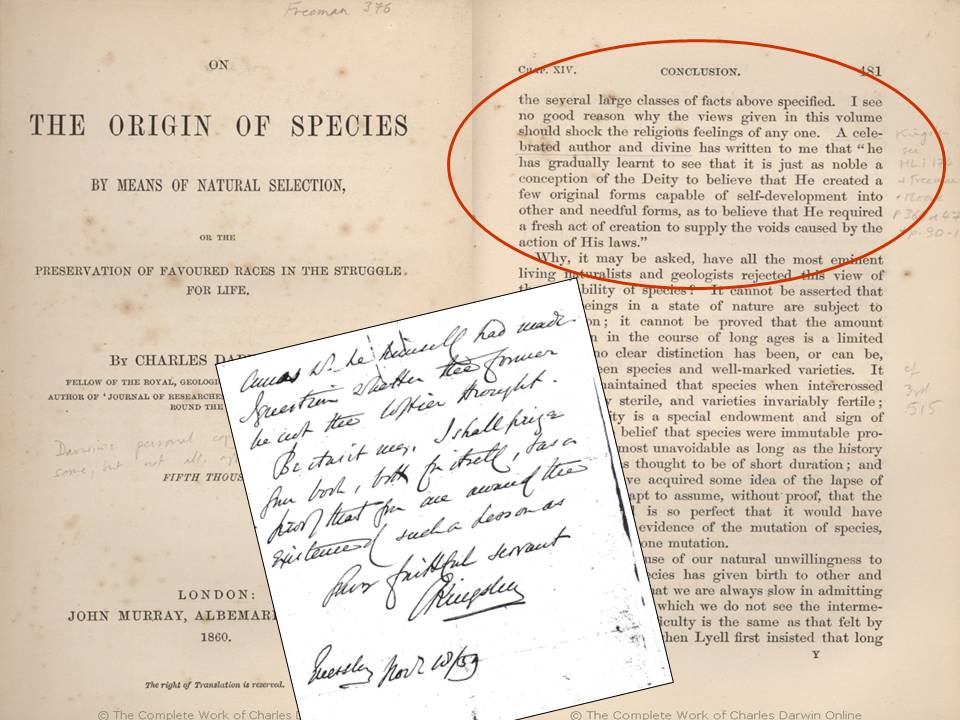 Freeman 376
ON
THE ORIGIN OF SPECIES
BY MEANS OF NATURAL SELECTION,
OR THE
PRESERVATION OF FAVOURED RACES IN THE STRUGGLE
FOR LIFE.
BY CHARLES DA
FELLOW OF THE ROYAL, GEOLOG
AUTHOR OF 'JOURNAL OF RESEARCHE
ROUND THE
Darwin's personal cop
some, but not all
FIFTH THOUS
LONDON:
JOHN MURRAY, ALBEMAR
1860.
The right of Translation is reserved.
© The Complete Work of Charles D
CHAP. XIV. CONCLUSION. 481
the several large classes of facts above specified. I see
no good reason why the views given in this volume
should shock the religious feelings of any one. A cele-
brated author and divine has written to me that "he
has gradually learnt to see that it is just as noble a
conception of the Deity to believe that He created a
few original forms capable of self-development into
other and needful forms, as to believe that He required
a fresh act of creation to supply the voids caused by the
action of His laws."
Why, it may be asked, have all the most eminent
living naturalists and geologists rejected this view of
bility of species? It cannot be asserted that
eings in a state of nature are subject to
on; it cannot be proved that the amount
n in the course of long ages is a limited
no clear distinction has been, or can be,
een species and well-marked varieties. It
maintained that species when intercrossed
y sterile, and varieties invariably fertile;
ity is a special endowment and sign of
belief that species were immutable pro-
most unavoidable as long as the history
s thought to be of short duration; and
ve acquired some idea of the lapse of
apt to assume, without proof, that the
l is so perfect that it would have
evidence of the mutation of species,
one mutation.
use of our natural unwillingness to
ecies has given birth to other and
hat we are always slow in admitting
which we do not see the interme-
iculty is the same as that felt by
hen Lyell first insisted that long
Y
see
cf
3rd
515
© The Complete Work of Charles Darwin Online
he himself had made.
I question whether the former
be not the loftier thought.
Be it as it may, I shall prize
your book, both for itself, & as a
proof that you are aware of the
existence of such a person as
Your faithful servant
C Kingsley
Eversley Novr 18/59